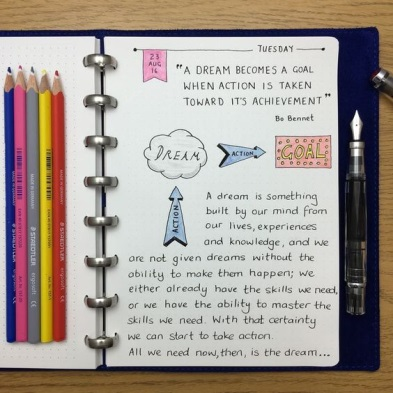 TUESDAY
23
AUG
16
"A DREAM BECOMES A GOAL
WHEN ACTION IS TAKEN
TOWARD IT'S ACHIEVEMENT"
Bo Bennet
DREAM
ACTION
GOAL
ACTION
A dream is something
built by our mind from
our lives, experiences
and knowledge, and we
are not given dreams without the
ability to make them happen; we
either already have the skills we need,
or we have the ability to master the
skills we need. With that certainty
we can start to take action.
All we need now, then, is the dream...
STAEDTLER
STAEDTLER